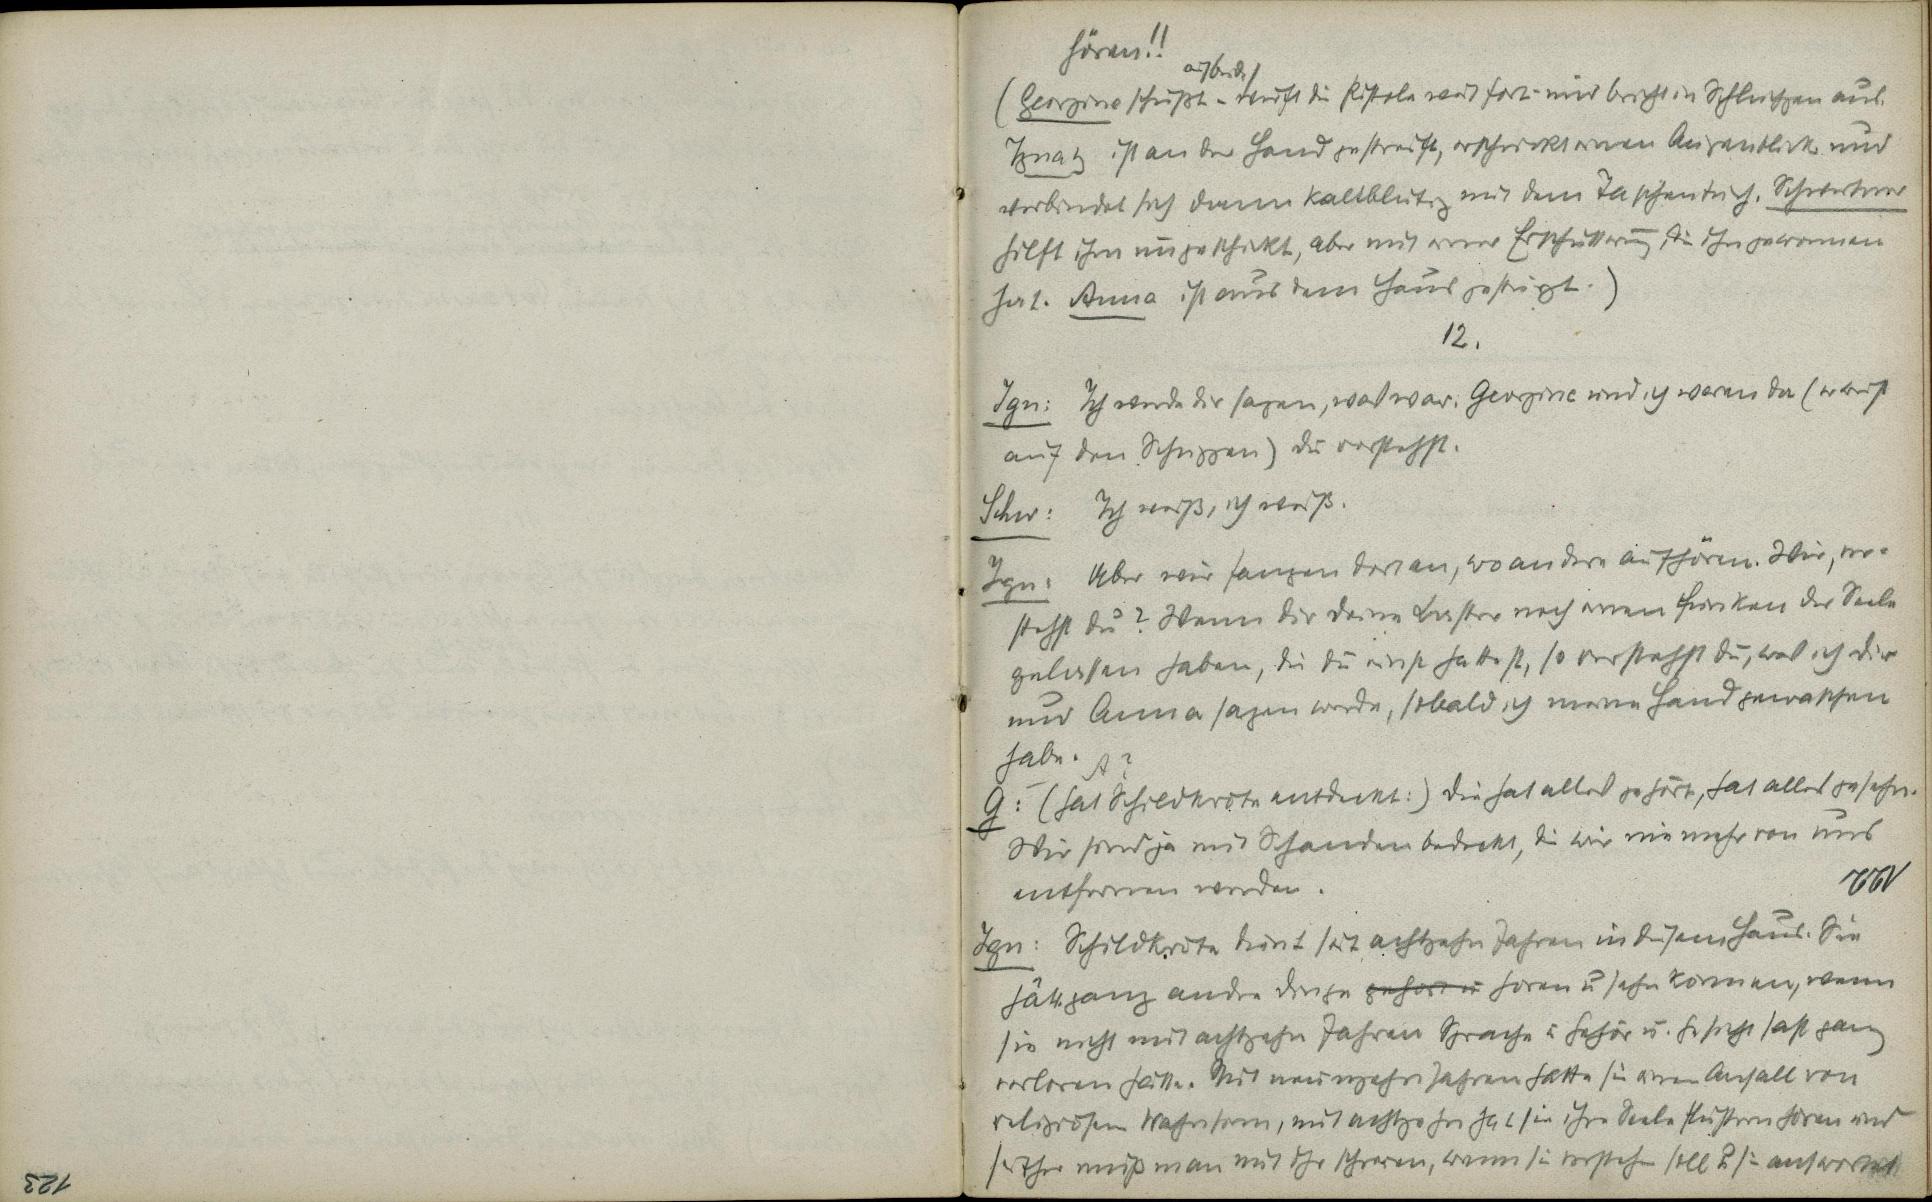 hören!!
auf beide
(Georgine schießt - wirft die Pistole weit fort und bricht in Schluchzen aus.
Ignatz ist an der Hand gestreift, erschrickt einen Augenblick und
verbindet sich dann kaltblütig mit dem Taschentuch. Schwertner
hilft ihm ungeschickt, aber mit einer Erschütterung, die ihn gewonnen
hat. Anna ist aus dem Haus gestürzt.)
12.
Ign: Ich werde dir sagen, was war. Georgine und ich waren da (er weist
auf den Schuppen) du verstehst.
Schw: Ich weiß, ich weiß.
Ign: Aber wir fangen dort an, wo andere aufhören. Wir, ver-
stehst du? Wenn dir deine Laster noch einen Funken der Seele
gelassen haben, die du einst hattest, so verstehst du, was ich dir
und Anna sagen werde, sobald ich meine Hand gewaschen
habe.
A?
G: (hat Schildkröte entdeckt:) Die hat alles gehört, hat alles gesehn.
Wir sind ja mit Schanden bedeckt, die wir nie mehr von uns
entfernen werden.
122
Ign: Schildkröte dient seit achtzehn Jahren in diesem Haus. Sie
hätte ganz andre Dinge gehört u hören u sehn können, wenn
sie nicht mit achtzehn Jahren Sprache u Gehör u. Gesicht fast ganz
verloren hätte. Mit neunzehn Jahren hatte sie einen Anfall von
religiösem Wahnsinn, mit achtzehn hat sie ihre Seele flüstern hören und
seither muß man mit ihr schreien, wenn sie verstehn soll & sie antwortet
123